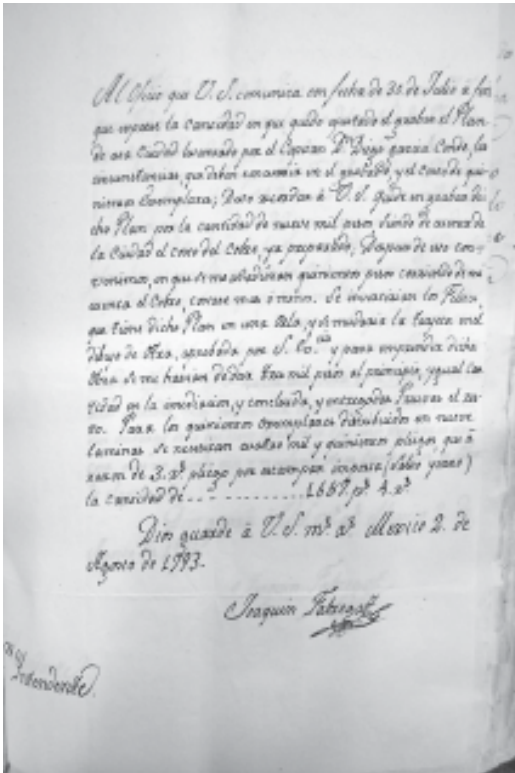 Al Oficio que V. S. comunica con fecha de 30. de Julio á fin
que exprese la cantidad en que quedó ajustado el grabar el Plan
de esta Ciudad levantado por el Capitan Dn. Diego garcia Conde, las
circunstancias, que deben en el grabado, y el costo de qui-
nientos Exemplares; Devo á V. S. quede en grabar di-
cho Plan por la cantidad de nueve mil pesos siendo de cuenta de
la Ciudad el costo del Cobre, ya preparado; Despues de eso con-
venimos, en que se me añadirían quinientos pesos de mi
cuenta el Cobre, costase mas ó menos. Se
que tiene dicho Plan en una sola, y se mudaria la tarjeta
dibujo de otra, aprobada por S. Ex.cia y para emprender dicha
Obra se me havian de dar tres mil pesos al principio, ygual can-
tidad en la mediacion, y concluida, y entregadas
to. Para los quinientos exemplares distribuidos en nueve
laminas se necesitan cuatro mil y quinientos pliegos que á
razon de 3. rs. pliego por estampar importa (salvo yerro)
la cantidad de - - - - - - - - - - 1.687. ps. 4. rs.
Dios guarde á V. S. ms. as. Mexico 2. de
Agosto de 1793.
Joaquin Fabregat
Intendente.